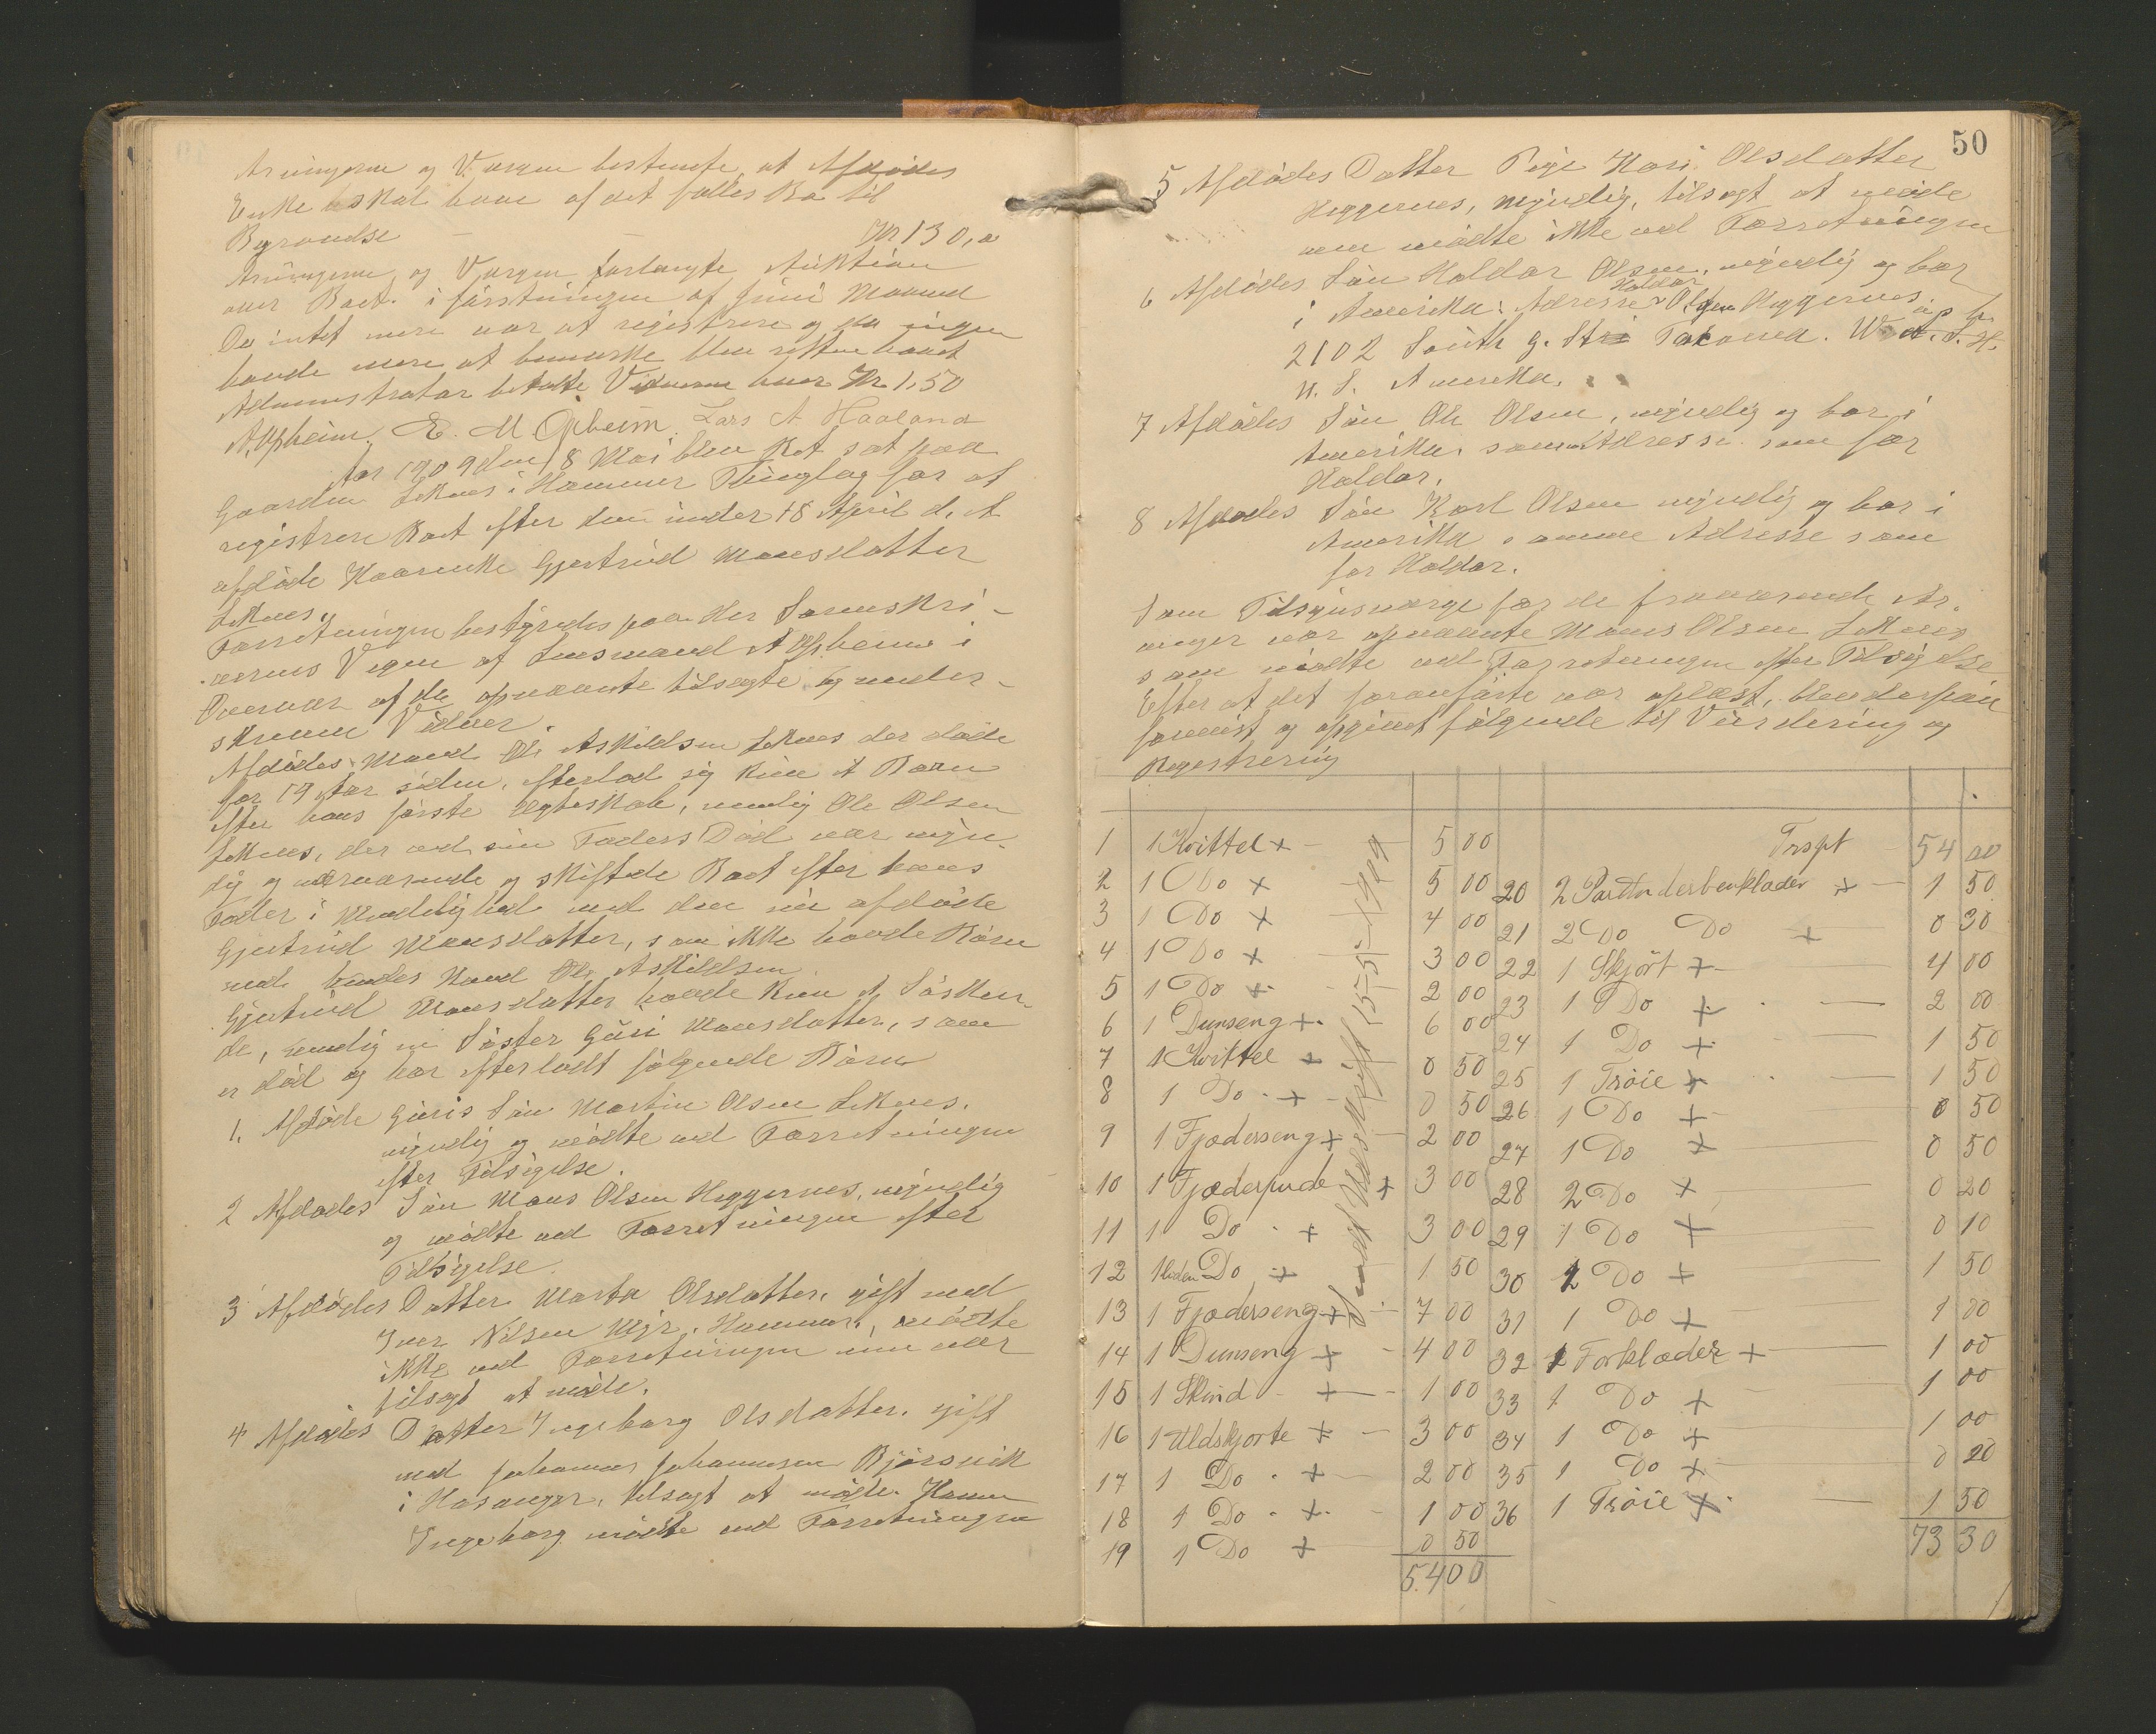 Arvingerne og Værgen bestemte at Afdødes
Enke skal have af det fælles Bo til
Begravelse — — Kr 130,00
Arvingerne og Værgen forlangte Auktion
over Boet i førstningen af Juni Maaned
Da intet mere var at registrere og da ingen
havde mere at bemærke blev retten hævet
Administrator betalte Vidnerne hver Kr. 1,50
A Opheim, E. M Opheim. Lars A Haaland
Aar 1909 den 18 Mai blev Ret sat paa
Gaarden Leknes i Hammer Tinglag for at
registrere Boet efter den under 18 April d. A
afdøde Kaarenke Gjertrud Monsdatter
Leknes.
Forretningen bestyredes paa Hr Sorenskri-
verens Vegne af Lensmand A Opheim i
Overvær af de opnævnte tilsagte og under-
skrevne Vidner.
Afdødes Mand Ole Askildsen Leknes der døde
for 19 Aar siden, efterlod sig kun 1 Barn
efter hans første Ægteskab, nemlig Ole Olsen
Leknes, der ved sin Faders Død var myn-
dig og nærværende og skiftede Boet efter hans
Fader i Mindelighed med den nu afdøde
Gjertrud Monsdatter, som ikke havde Børn
med hendes Mand Ole Askildsen
Gjertrud Monsdatter havde kun 1 Søsken-
de, nemlig en Søster Guri Monsdatter, som
er død og har efterladt følgende Børn
1. Afdøde Guris Søn Martin Olsen Leknes.
myndig og mødte ved Forretningen
efter Tilsigelse.
2 Afdødes Søn Mons Olsen Heggernes, myndig
og mødte ved Forretningen efter
Tilsigelse.
3 Afdødes Datter Marta Olsdatter, gift med
Iver Nilsen Mjr. Hammer, mødte
ikke ved Forretningen men var
tilsagt at møde.
4 Afdødes Datter Ingeborg Olsdatter, gift
med Johannes Johannesen Bjørsvik
i Hosanger, tilsagt at møde.
Ingeborg mødte ved Forretningen
50
5 Afdødes Datter Pige Kari Olsdatter
Heggernes, myndig, tilsagt at møde
men mødte ikke ved Forretningen
6 Afdødes Søn Haldor Olsen, myndig og bor
Haldor
i Amerika: Adresse: Olsen Heggernes
2102 South g. Str Tacoma. W
U. S. Amerika.
7 Afdødes Søn Ole Olsen, myndig og bor i
Amerika, samme Adresse som for
Haldor.
8 Afdødes Søn Karl Olsen myndig og bor i
Amerika samme Adresse som
for Haldor.
Som Tilsynsværge for de fraværende Ar-
vinger var opnævnte Mons Olsen Leknes
som mødte ved Forretningen efter Tilsigelse
Efter at det foranførte var oplæst, blev derpaa
forevist og opgivet følgende til Vurdering og
Registrering
1 1 Kvittel + 5 00
2 1 Do + 5 00
3 1 Do + 4 00
4 1 Do + 3 00
5 1 Do + 2 00
6 1 Dunseng + 6 00
7 1 Kvittel + 0 50
8 1 Do + 0 50
9 1 Fjæderseng + 2 00
10 1 Fjæderpude + 3 00
11 1 Do + 3 00
12 1 liden Do + 1 50
13 1 Fjæderseng + 7 00
14 1 Dunseng + 4 00
15 1 Skind + 1 00
16 1 Uldskjorte + 3 00
17 1 Do + 2 00
18 1 Do + 1 00
19 1 Do + 0 50
54 00
Trspt 54 00
20 2 Par Underbenklæder + 1 50
21 2 Do Do + 0 30
22 1 Skjørt + 4 00
23 1 Do + 2 00
24 1 Do + 1 50
25 1 Trøie + 1 50
26 1 Do + 0 50
27 1 Do + 0 50
28 2 Do + 0 20
29 1 Do + 0 10
30 2 Do + 1 50
31 1 Do + 1 00
32 1 Forklæder + 1 00
33 1 Do + 1 00
34 1 Do + 1 00
35 1 Do + 0 20
36 1 Trøie + 1 50
73 30